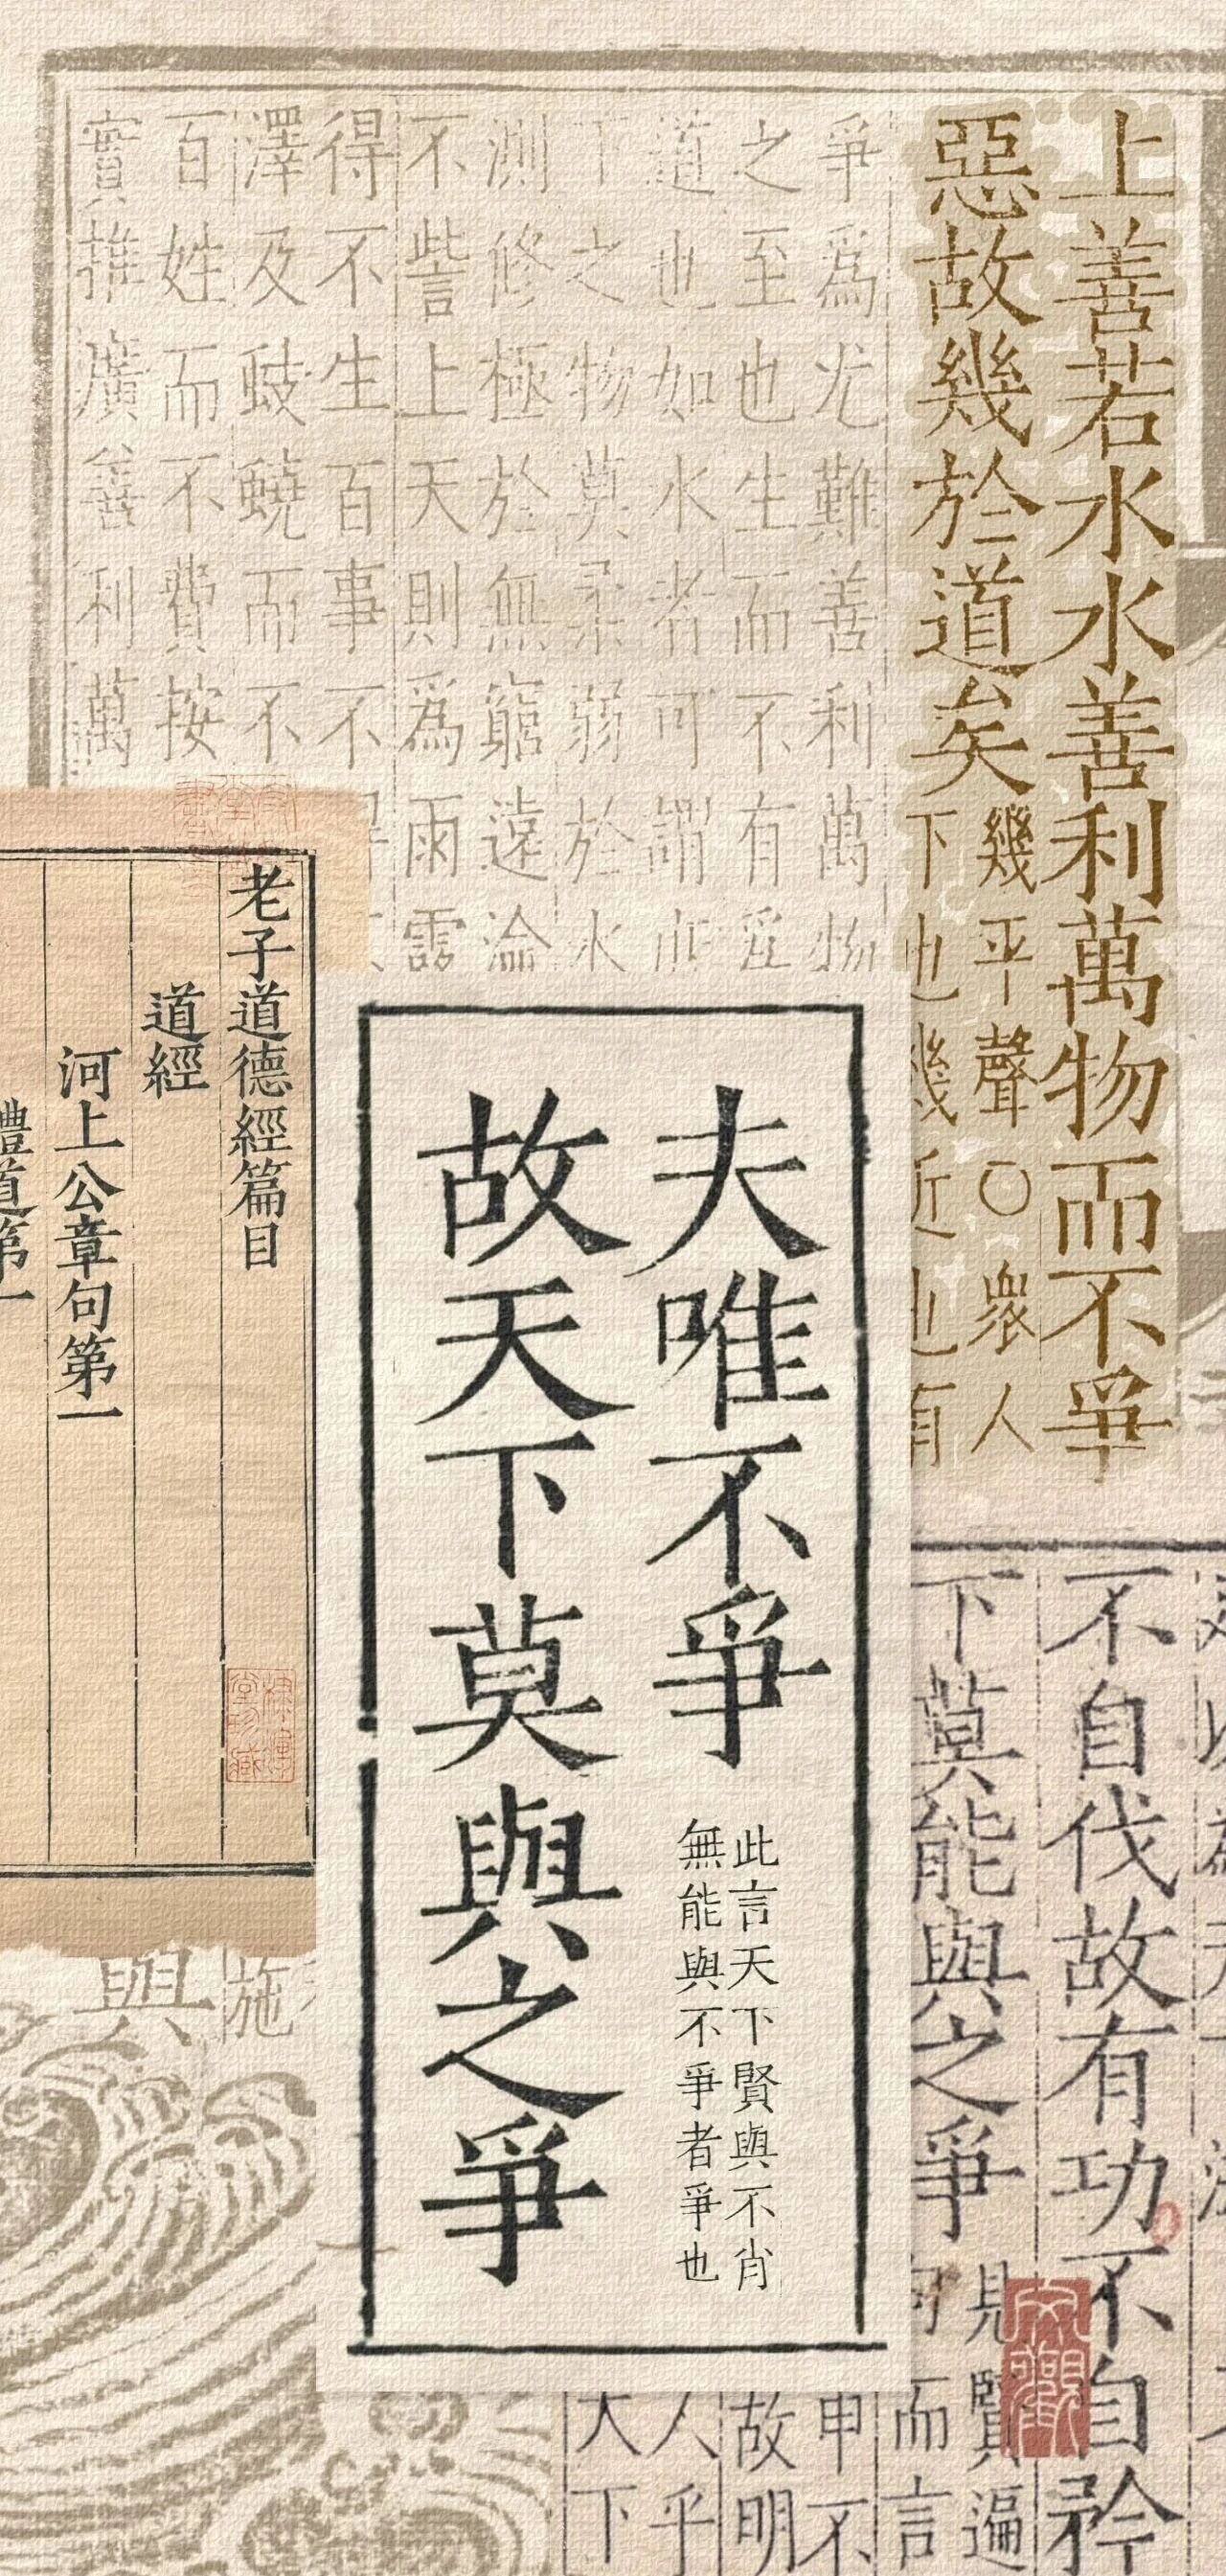 上善若水水善利萬物而不爭
惡故幾於道矣
幾平聲〇衆人
下也幾近也有
爭為尤難善利萬物
之至也生而不有
道也如水者可謂
下之物莫柔弱於水
測修極於無窮遠淪
不訾上天則為雨露
得不生百事不
澤及蚑蟯而不
百姓而不費按
實推廣善利萬
老子道德經篇目
道經
河上公章句第一
體道第一
夫唯不爭
此言天下賢與不肖
無能與不爭者爭也
故天下莫與之爭
不自伐故有功不自矜
下莫能與之爭
見賢遍
而言
申不
故明
人乎
天下
施
與